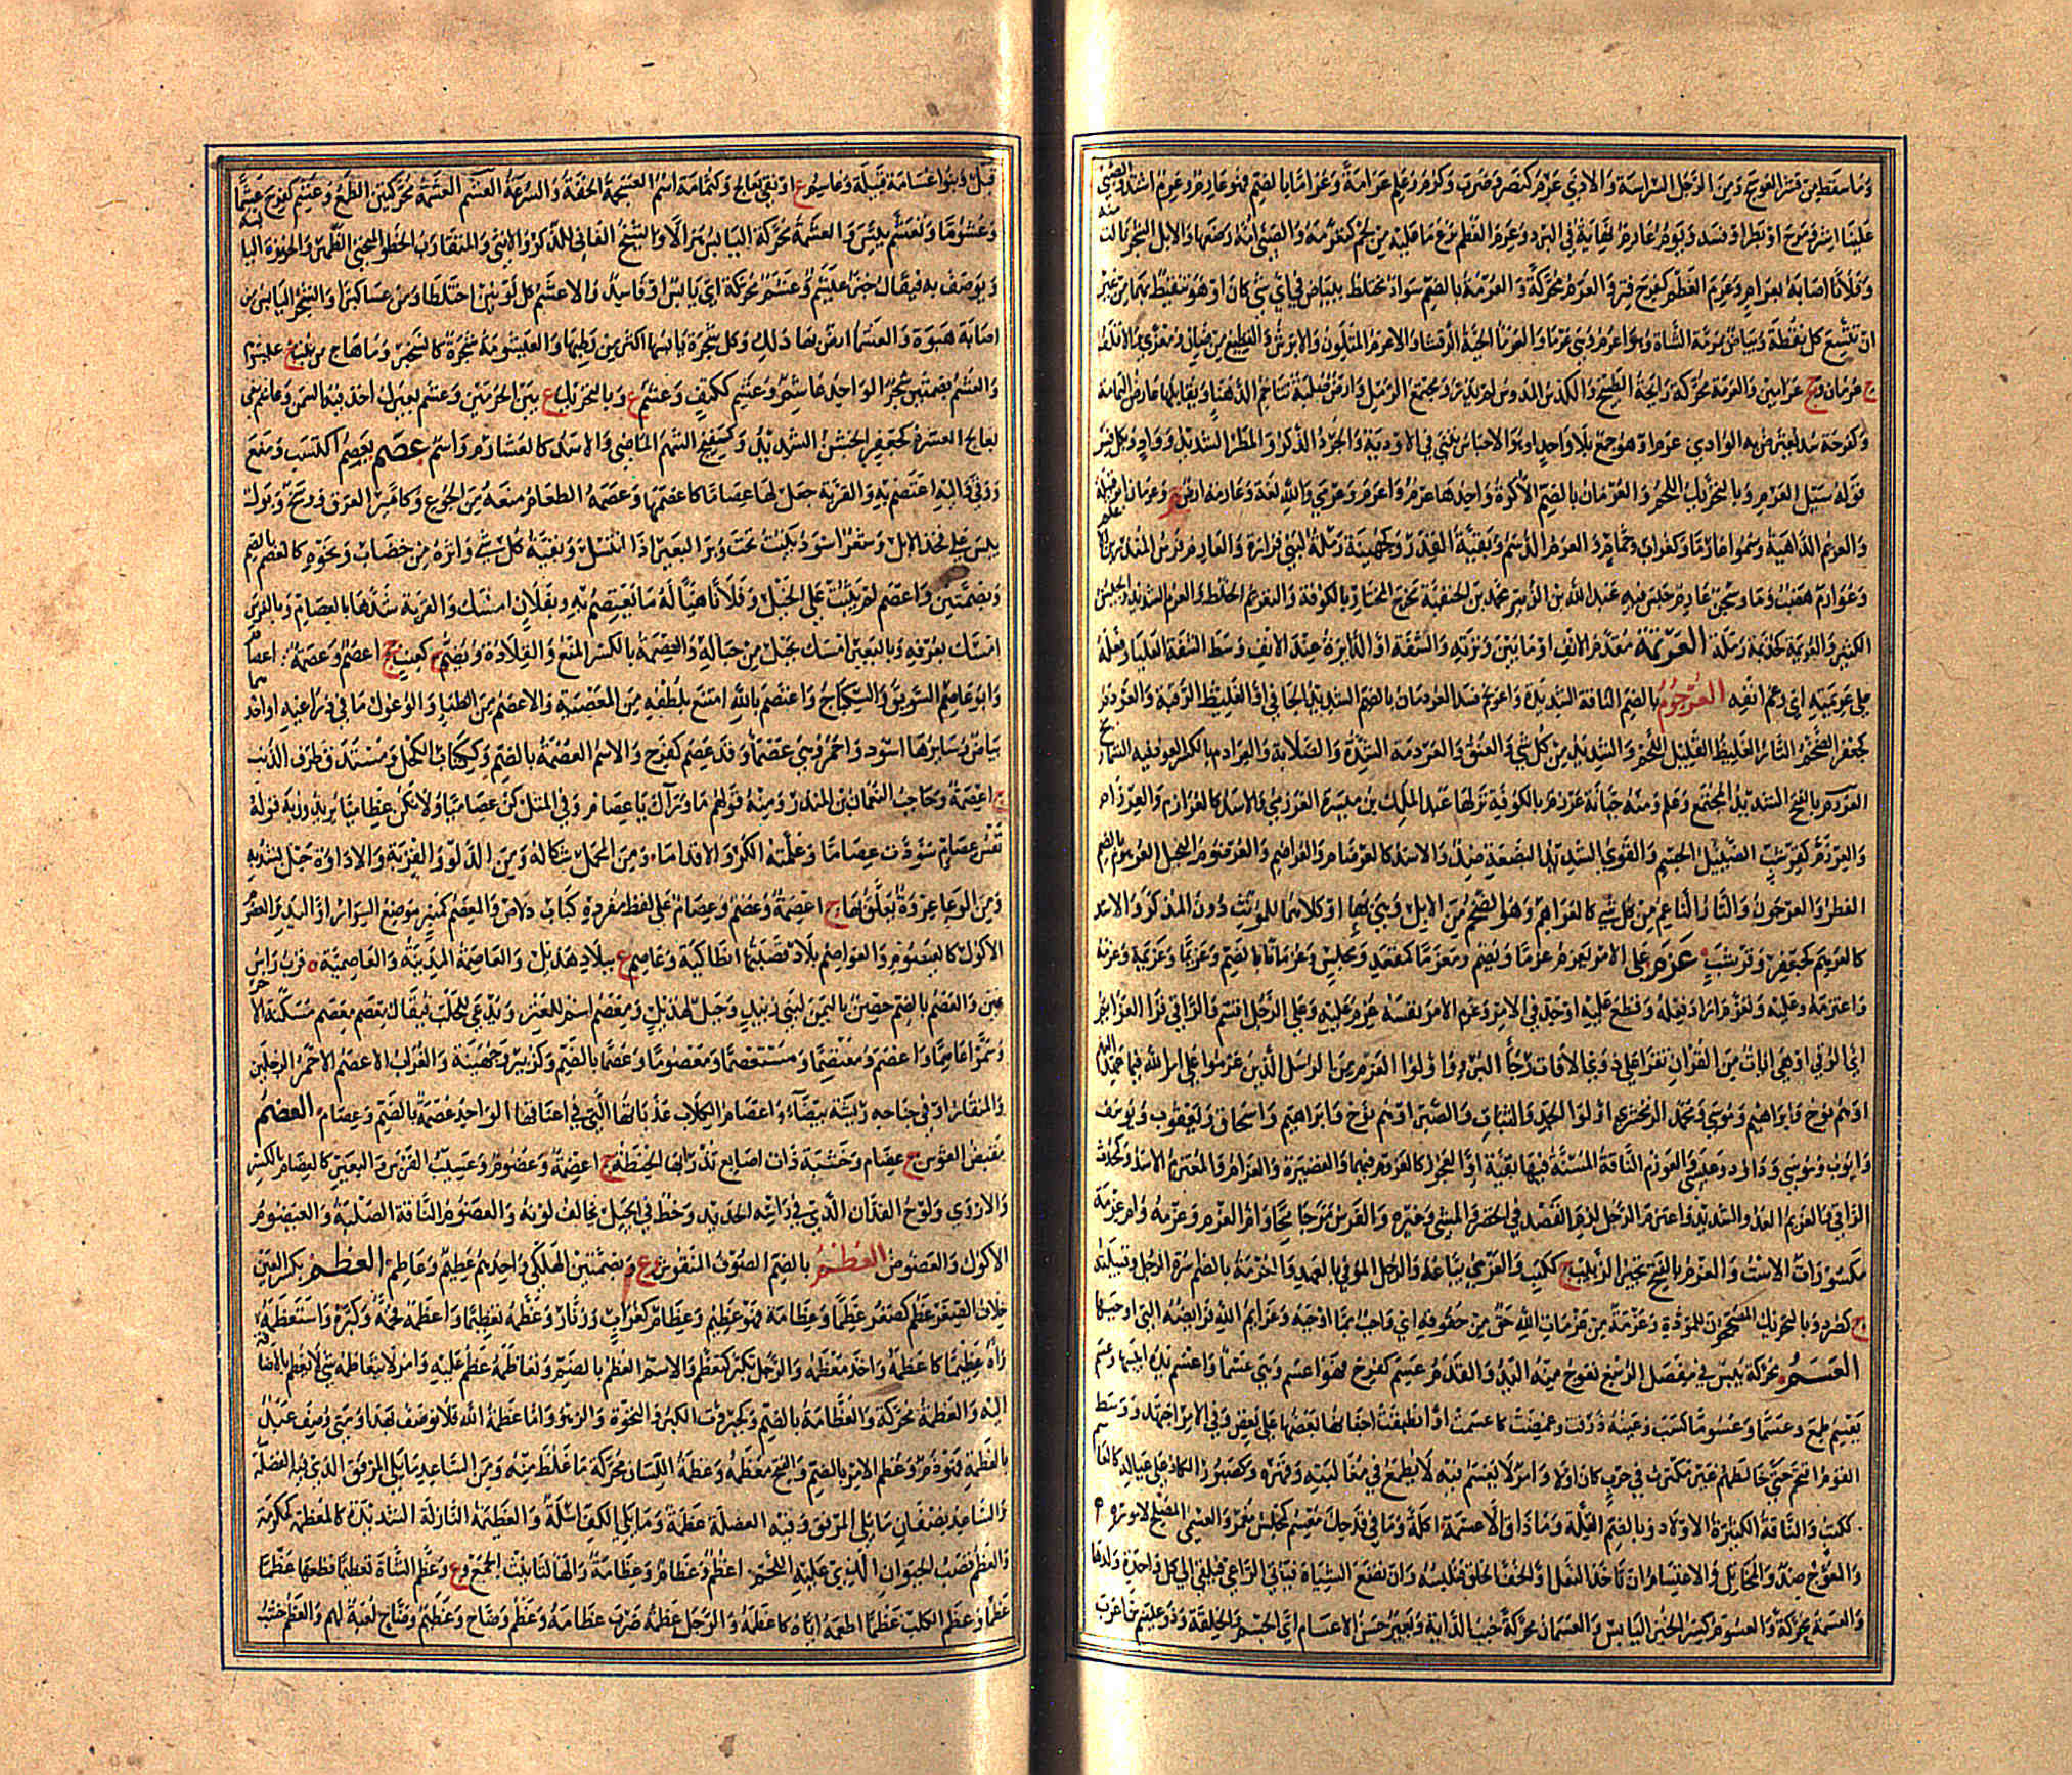 وما سقط من قشر العوسج ومن الرجل الشراسة والاذى عرم كنصر وضرب وكرم وعلم عرامة وعراما بالضم فهو عارم وعرم اشتد والصبي
علينا اشر ومرح او بطر او فسد ويوم عارم نهاية في البرد وعرم العظم نزع ما عليه من لحم كتعرمه والصبي امه رضعها والابل الشجر نالت منه
وفلانا اصابه بعرام وعرم العظم كفرح قتر والعرم محركة والعرمة بالضم سواد مختلط ببياض في اي شيء كان او هو تنقيط بهما من غير
ان تتسع كل نقطة وبياض بمرمة الشاة وهو اعرم وهي عرما والعرما الحية الرقشا والاعرم المتلون والابرش والقطيع من ضان ومعزى والاقلف
ج عرمان جج عرامين والعرمة محركة رايحة الطبيخ والكدس المدوس لم يذر ومجتمع الرمل وارض صلبة تتاخم الدهناء ويقابلها عارض اليمامة
وكفرحة سد يعترض به الوادي ج عرم او هو جمع بلا واحد او هو الاحباس تبنى في الاودية والجرذ الذكر والمطر الشديد وواد وبكل فسر
قوله سيل العرم وبالتحريك اللحم والعرمان بالضم الاكرة واحدها عرم واعرم وعرمي والله لغة وعارمة ارض م وعرمان ابو قبيلة
والعريم الداهية وسموا عارما وكغراب وحمامة والعرم الدسم وبقية القدر وكجهينة رملة لبني فزارة والعارم فرس المنذر بن الاعلم
وعوارم هضبة وماء وسجن عارم حبس فيه عبد الله بن الزبير محمد بن الحنفية تحرج المختار بالكوفة والتعريم الخلط والعرم الشديد والجيش
الكثير والعريمة كخديمة رملة العرتمة مقدم الانف او ما بين وترته والشفة او الدايرة عند الانف وسط الشفة العليا وفعله
على عرتمته اي رغم انفه العرجوم بالضم الناقة الشديدة واعرم فسد العردمان بالضم الشديد الجافي او الغليظ الرقبة والعردم
كجعفر الضخم التار الغليظ القليل اللحم والشديد من كل شيء والعنق والعردمة الشدة والصلابة والعرادم بالكسر
العرزم بالفتح الشديد المجتمع وعلم ومنه جبانة عرزم بالكوفة نزلها عبد الملك بن ميسرة العرزمي والاسد كالعرازم والعرزام
والعرزم كقرشب الضئيل الجسم والقوي الشديد البضعة ضد والاسد كالعرضام والعراضم والعرضوم البخيل العرهوم بالضم
الفطر والعرجون والتار الناعم من كل شيء كالعراهم وهو الضخم من الابل وهي بهاء او كلاهما للمؤنث دون المذكر والاسد
كالعرهم كجعفر وقرشب عزم على الامر يعزم عزما ويضم ومعزما كمقعد ومجلس وعزمانا بالضم وعزيما وعزيمة وعزمة
واعتزمه وعليه وتعزم اراد فعله وقطع عليه او جد في الامر وعزم الامر نفسه عزم عليه وعلى الرجل اقسم والراقي قرا العزائم
اي الرقى او هي ايات من القران تقرا على ذوي الافات رجاء البرء واولوا العزم من الرسل الذين عزموا على امر الله فيما عهد اليهم
او هم نوح وابراهيم وموسى ومحمد الزمخشري اولوا الجد والثبات والصبر او هم نوح وابراهيم واسحاق ويعقوب ويوسف
وايوب وموسى وداود وعيسى والعوزم الناقة المسنة فيها بقية والعجوز كالعزوم فيهما والقصيرة والعزام والمعتزم الاسد وكحدث
الراقي والعزيم العدو الشديد واعتزم الرجل لزم القصد في الحضر والمشي وغيره والفرس مر جامحا وام العزم وعزمة وام عزمة
مكسورات الاست والعزم بالفتح ثجير الزبيب ج ككتب والعزمي بياعه والرجل الموفي بالعهد والعزمة بالضم اسرة الرجل وقبيلته
ج كصرد وبالتحريك المصححون للمودة وعزمة من عزمات الله حق من حقوقه اي واجب مما اوجبه وعزايم الله فرايضه التي اوجبها
العسم محركة يبس في مفصل الرسغ تعوج منه اليد والقدم عسم كفرح فهو اعسم وهي عسما واعسم يده ايبسها وعسم
يعسم طمع وعسما وعسوما كسب وعينه ذرفت وغمضت كاعسمت او انطبقت اجفانها بعضها على بعض وفي الامر اجتهد ووسط
القوم اقتحم حتى خالطهم غير مكترث في حرب كان او لا وامر لا يعسم فيه لا يطمع في مغالبته وقهره وكصبور الكاد على عياله كالعا
ككتب والناقة الكثيرة الاولاد وبالضم القلة وما ذاق الا عسمة اكلة وما في قدحك معسم كمجلس مغمز والعسمي المصلح لاموره
والمعوج ضد والمخاتل والاعتسام ان تاخذ النعل والخف الخلق فتلبسه وان تضع الشياة فياتي الراعي فيلقي الى كل واحدة ولدها
والعسمة محركة والعسوم كسر الخبز اليابس والعسمان محركة خبب الدابة وبعير حسن الاعسام اي الجسم والخلقة وذو عليم من اعرب
قيل وبنوا عسامة قبيلة وعاسم ع او نقى بعالج وكثمامة اسم العسجمة الخفة والسرعة العشم العشمة محركتين الطمع وعشم كفرح عشما
وعشوما وتعشم يبس والعشمة محركة اليابس هزالا والشيخ الفاني للذكر والانثى والمتقارب الخطو المنحني الظهر والخبزة اليا
ويوصف به فيقال خبز عيشم وعشم محركة اي يابس او فاسد والاعشم كل لونين اختلطا ومن عسا كبرا والشجر اليابس من
اصابة هبوة والعشما ارض بها ذلك وكل شجرة يابسها اكثر من رطبها والعيشومة شجرة كالسخبر وما هاج من نبت ج عيشوم
والعشم بضمتين شجر الواحد عاشم وعشم ككتف وعشم ع وبالتحريك ع بين الحرمين وعشم يعشم اخذ فيه السمن وعاشم نقى
بعالج العشرم كجعفر الخشن الشديد وكسفيع الشهم الماضي والاسد كالعشارم واسم عصم يعصم اكتسب ومنع
ووقى واليه اعتصم به والقربة جعل لها عصاما كاعصمها وعصمه الطعام منعه من الجوع وكامير العرق ووسخ وبول
ييبس على فخذ الابل وشعر اسود ينبت تحت وبر البعير اذا انتسل وبقية كل شيء واثره من خضاب ونحوه كالعصم بالضم
وبضمتين واعصم لم يثبت على الخيل وفلانا هيا له ما يعتصم به وبفلان امسك والقربة شدها بالعصام وبالفرس
امسك بعرفه وبالبعير امسك بحبل من حباله والعصمة بالكسر المنع والقلادة ويضم كعنب ج اعصم وعصمة جج اعصام
وابو عاصم السويق والسكباج واعتصم بالله امتنع بلطفه من المعصية والاعصم من الظباء والوعول ما في ذراعيه او احدهما
بياض وسايرها اسود واحمر وهي عصما وقد عصم كفرح والاسم العصمة بالضم وككتاب الكحل ومستدق طرف الذنب
ج اعصمة وحاجب النعمان بن المنذر ومنه قولهم ما وراءك يا عصام وفي المثل كن عصاميا ولا تكن عظاميا يريدون به قوله
نفس عصام سودت عصاما وعلمته الكر والاقداما ومن المحمل شكاله ومن الدلو والقربة والاداوة حبل يشد به
ومن الوعاء عروة يعلق بها ج اعصمة وعصم وعصام على لفظ مفرده كباب دلاص والمعصم كمنبر موضع السوار او اليد والعصوم
الاكول كالعيصوم والعواصم بلاد قصبتها انطاكية وعاصم ع ببلاد هذيل والعاصمة المدينة والعاصمية ه قرب راس
عين والعصم بالضم حصن باليمن لبني زبيد وجبل لهذيل ومعصم اسم للعنز وتدعى للحلب فيقال معصم معصم مسكنة الاخر
وسموا عاصما واعصم ومعتصما ومستعصما ومعصوما وعصما بالضم وكزبير وجهينة والغراب الاعصم الاحمر الرجلين
والمنقار او في جناحه ريشة بيضاء واعصام الكلاب عذباتها التي في اعناقها الواحد عصمة بالضم وعصام العضم
مقبض القوس ج عضام وخشبة ذات اصابع تذرى بها الحنطة ج اعضمة وعضم وعسيب الفرس والبعير كالعضام بالكسر
والاروي ولوح الفدان الذي في راسه الحديد وخط في الجبل يخالف لونه والعضوم الناقة الصلبة والعيضوم
الاكول والعضوض العظم بالضم الصوف المنقوش وع وبضمتين الهلكى واحدهم عطيم وعاطم العظم بكسر العين
خلاف الصغر عظم كصغر عظما وعظامة فهو عظيم وعظام كغراب وزنار وعظمه تعظيما واعظمه فخمه وكبره واستعظمه
راه عظيما كاعظمه واخذ معظمه والرجل تكبر كتعظم والاسم العظم بالضم وتعاظمه عظم عليه وامر لا يتعاظمه شيء لا يعظم بالاضافة
اليه والعظمة محركة والعظامة بالضم وكجبروت الكبر والنخوة والزهو واما عظمة الله فلا توصف بهذا ومتى وصف عبد
بالعظمة فهو ذم وعظم الامر بالضم والفتح معظمه وعظمة اللسان محركة ما غلظ منه ومن الساعد ما يلي المرفق الذي فيه العضلة
والساعد نصفان ما يلي المرفق وفيه العضلة عظمة وما يلي الكف اسلة والعظيمة النازلة الشديدة كالمعظمة كمكرمة
والعظم قصب الحيوان الذي عليه اللحم ج اعظم وعظام وعظامة والهاء لتانيث الجمع وع وعظم الشاة تعظيما قطعها عظما
عظما وعظم الكلب عظما اطعمه اياه كاعظمه والرجل عظمة ضرب عظامه وعظم وضاح وعظيم وضاح لعبة لهم والعظم خشب